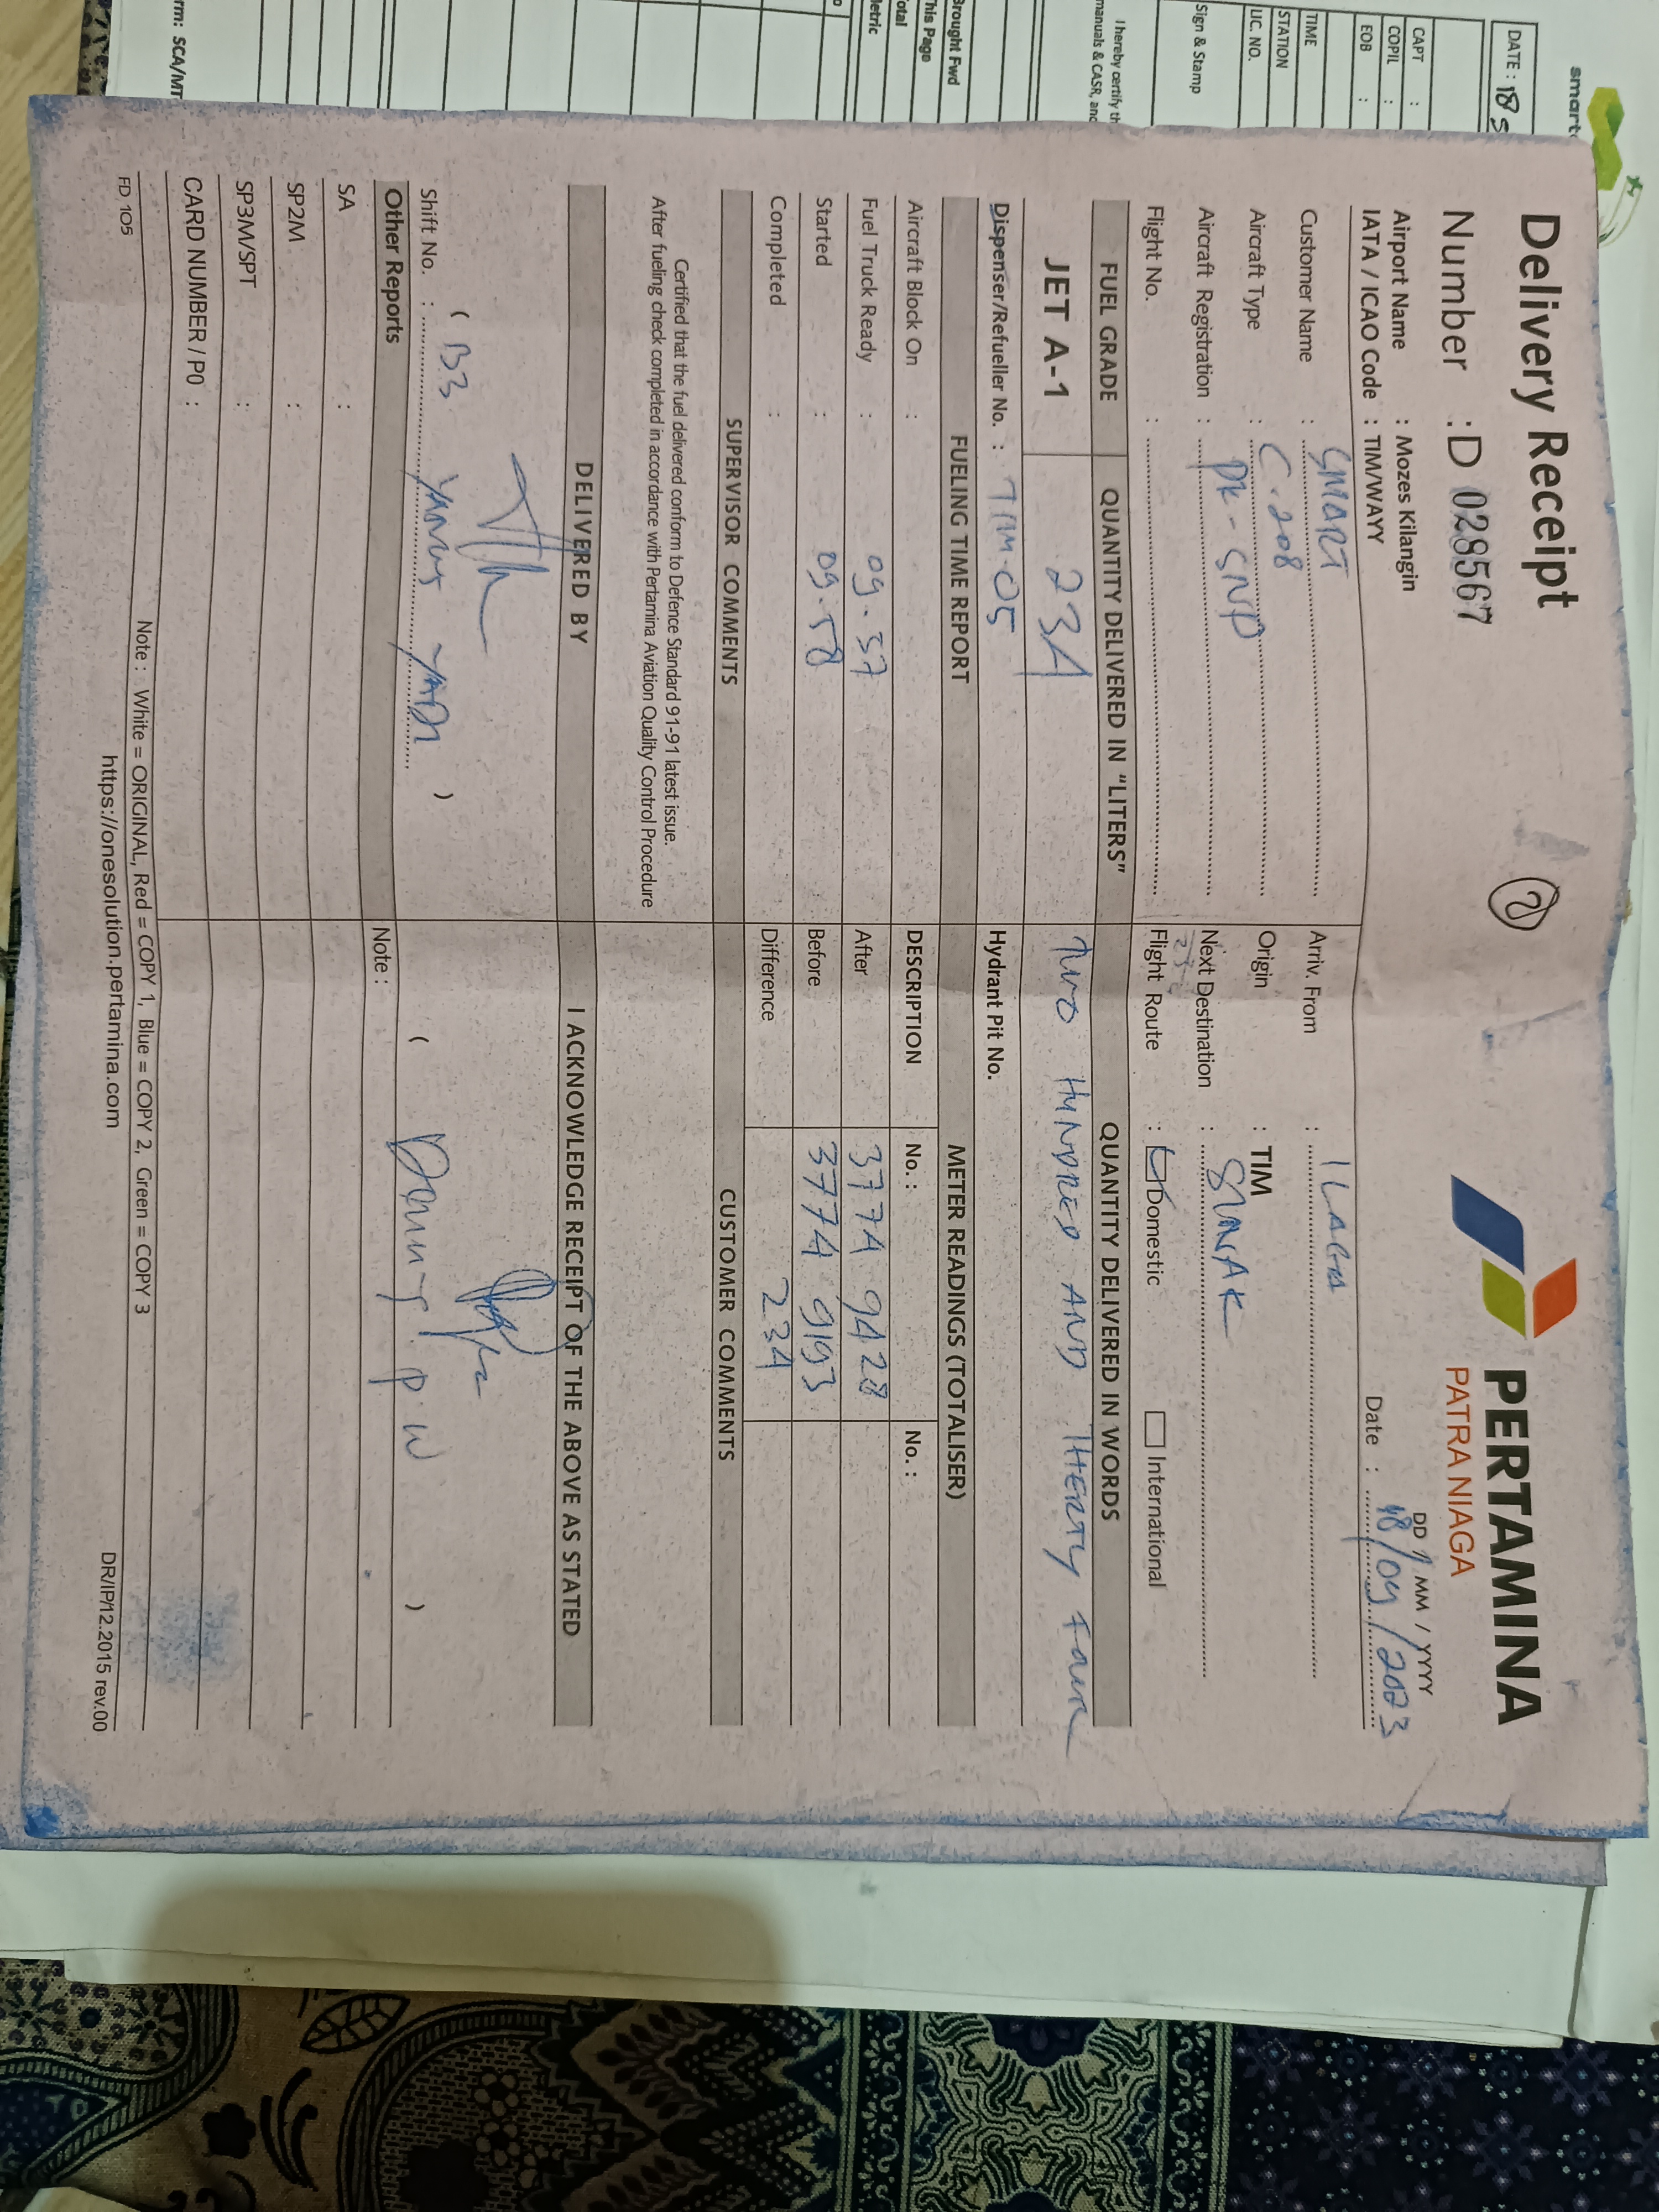 Delivery Receipt
PERTAMINA
PATRA NIAGA
Number : D 028567
2
DD / MM / YYYY
Date : 18/09/2023
Airport Name : Mozes Kilangin
IATA / ICAO Code : TIM/WAYY
Customer Name : SMART
Arriv. From : ILAGA
Aircraft Type : C.208
Origin : TIM
Aircraft Registration : PK-SNP
Next Destination : SINAK
Flight No. :
Flight Route : Domestic International
FUEL GRADE QUANTITY DELIVERED IN "LITERS" QUANTITY DELIVERED IN WORDS
JET A-1 234 TWO HUNDRED AND THERTY FOUR
Dispenser/Refueller No. : TIM-05 Hydrant Pit No.
FUELING TIME REPORT METER READINGS (TOTALISER)
Aircraft Block On : DESCRIPTION No. : No. :
Fuel Truck Ready : 09.37 After 3774 9428
Started : 09.58 Before 3774 9193
Completed : Difference 234
SUPERVISOR COMMENTS CUSTOMER COMMENTS
Certified that the fuel delivered conform to Defence Standard 91-91 latest issue.
After fueling check completed in accordance with Pertamina Aviation Quality Control Procedure
DELIVERED BY I ACKNOWLEDGE RECEIPT OF THE ABOVE AS STATED
( )
( )
Shift No. :
Other Reports Note :
SA :
SP2M :
SP3M/SPT :
CARD NUMBER / P0 :
Note : White = ORIGINAL, Red = COPY 1, Blue = COPY 2, Green = COPY 3
FD 105 https://onesolution.pertamina.com DR/IP/12.2015 rev.00
smart
DATE : 18 S
CAPT :
COPIL :
EOB :
TIME
STATION
LIC. NO.
Sign & Stamp
I hereby certify th
manuals & CASR, and
Brought Fwd
This Page